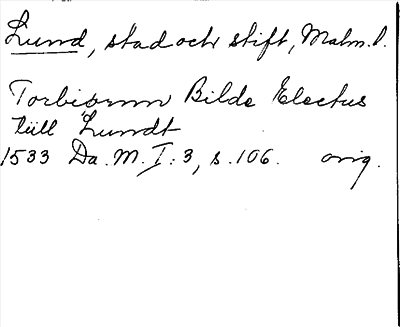 Lund, stad och stift, Malm. l.
Torbiörnn Bilde Electus
tiill Lundt
1533 Da. M. I: 3, s. 106. orig.